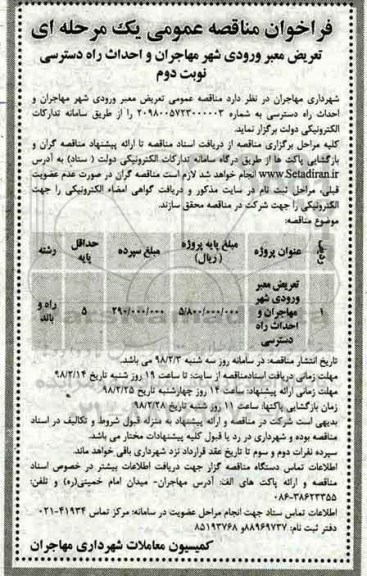 فراخوان مناقصه عمومی یک مرحله ای
تعریض معبر ورودی شهر مهاجران و احداث راه دسترسی
نوبت دوم
شهرداری مهاجران در نظر دارد مناقصه عمومی تعریض معبر ورودی شهر مهاجران و
احداث راه دسترسی به شماره ۲۰۹۸۰۰۵۷۲۳۰۰۰۰۰۳ را از طریق سامانه تدارکات
الکترونیکی دولت برگزار نماید.
کلیه مراحل برگزاری مناقصه از دریافت اسناد مناقصه تا ارائه پیشنهاد مناقصه گران و
بازگشایی پاکت ها از طریق درگاه سامانه تدارکات الکترونیکی دولت ( ستاد) به آدرس
www.Setadiran.ir انجام خواهد شد لازم است مناقصه گران در صورت عدم عضویت
قبلی، مراحل ثبت نام در سایت مذکور و دریافت گواهی امضاء الکترونیکی را جهت
الکترونیکی را جهت شرکت در مناقصه محقق سازند.
موضوع مناقصه:
ردیف عنوان پروژه مبلغ پایه پروژه (ریال) مبلغ سپرده حداقل پایه رشته
۱ تعریض معبر ورودی شهر مهاجران و احداث راه دسترسی ۵/۸۰۰/۰۰۰/۰۰۰ ۲۹۰/۰۰۰/۰۰۰ ۵ راه و باند
تاریخ انتشار مناقصه: در سامانه روز سه شنبه ۹۸/۲/۳ می باشد.
مهلت زمانی دریافت اسنادمناقصه از سایت: تا ساعت ۱۹ روز شنبه تاریخ ۹۸/۲/۱۴
مهلت زمانی ارائه پیشنهاد: ساعت ۱۴ روز چهارشنبه تاریخ ۹۸/۲/۲۵
زمان بازگشایی پاکتها: ساعت ۱۱ روز شنبه تاریخ ۹۸/۲/۲۸
بدیهی است شرکت در مناقصه و ارائه پیشنهاد به منزله قبول شروط و تکالیف در اسناد
مناقصه بوده و شهرداری در رد یا قبول کلیه پیشنهادات مختار می باشد.
سپرده نفرات دوم و سوم تا تاریخ عقد قرارداد نزد شهرداری باقی خواهد ماند.
اطلاعات تماس دستگاه مناقصه گزار جهت دریافت اطلاعات بیشتر در خصوص اسناد
مناقصه و ارائه پاکت های الف: آدرس مهاجران- میدان امام خمینی(ره) و تلفن:
۰۸۶-۳۸۶۲۳۳۵۵
اطلاعات تماس ستاد جهت انجام مراحل عضویت در سامانه: مرکز تماس ۴۱۹۳۴-۰۲۱
دفتر ثبت نام: ۸۸۹۶۹۷۳۷و ۸۵۱۹۳۷۶۸
کمیسیون معاملات شهرداری مهاجران